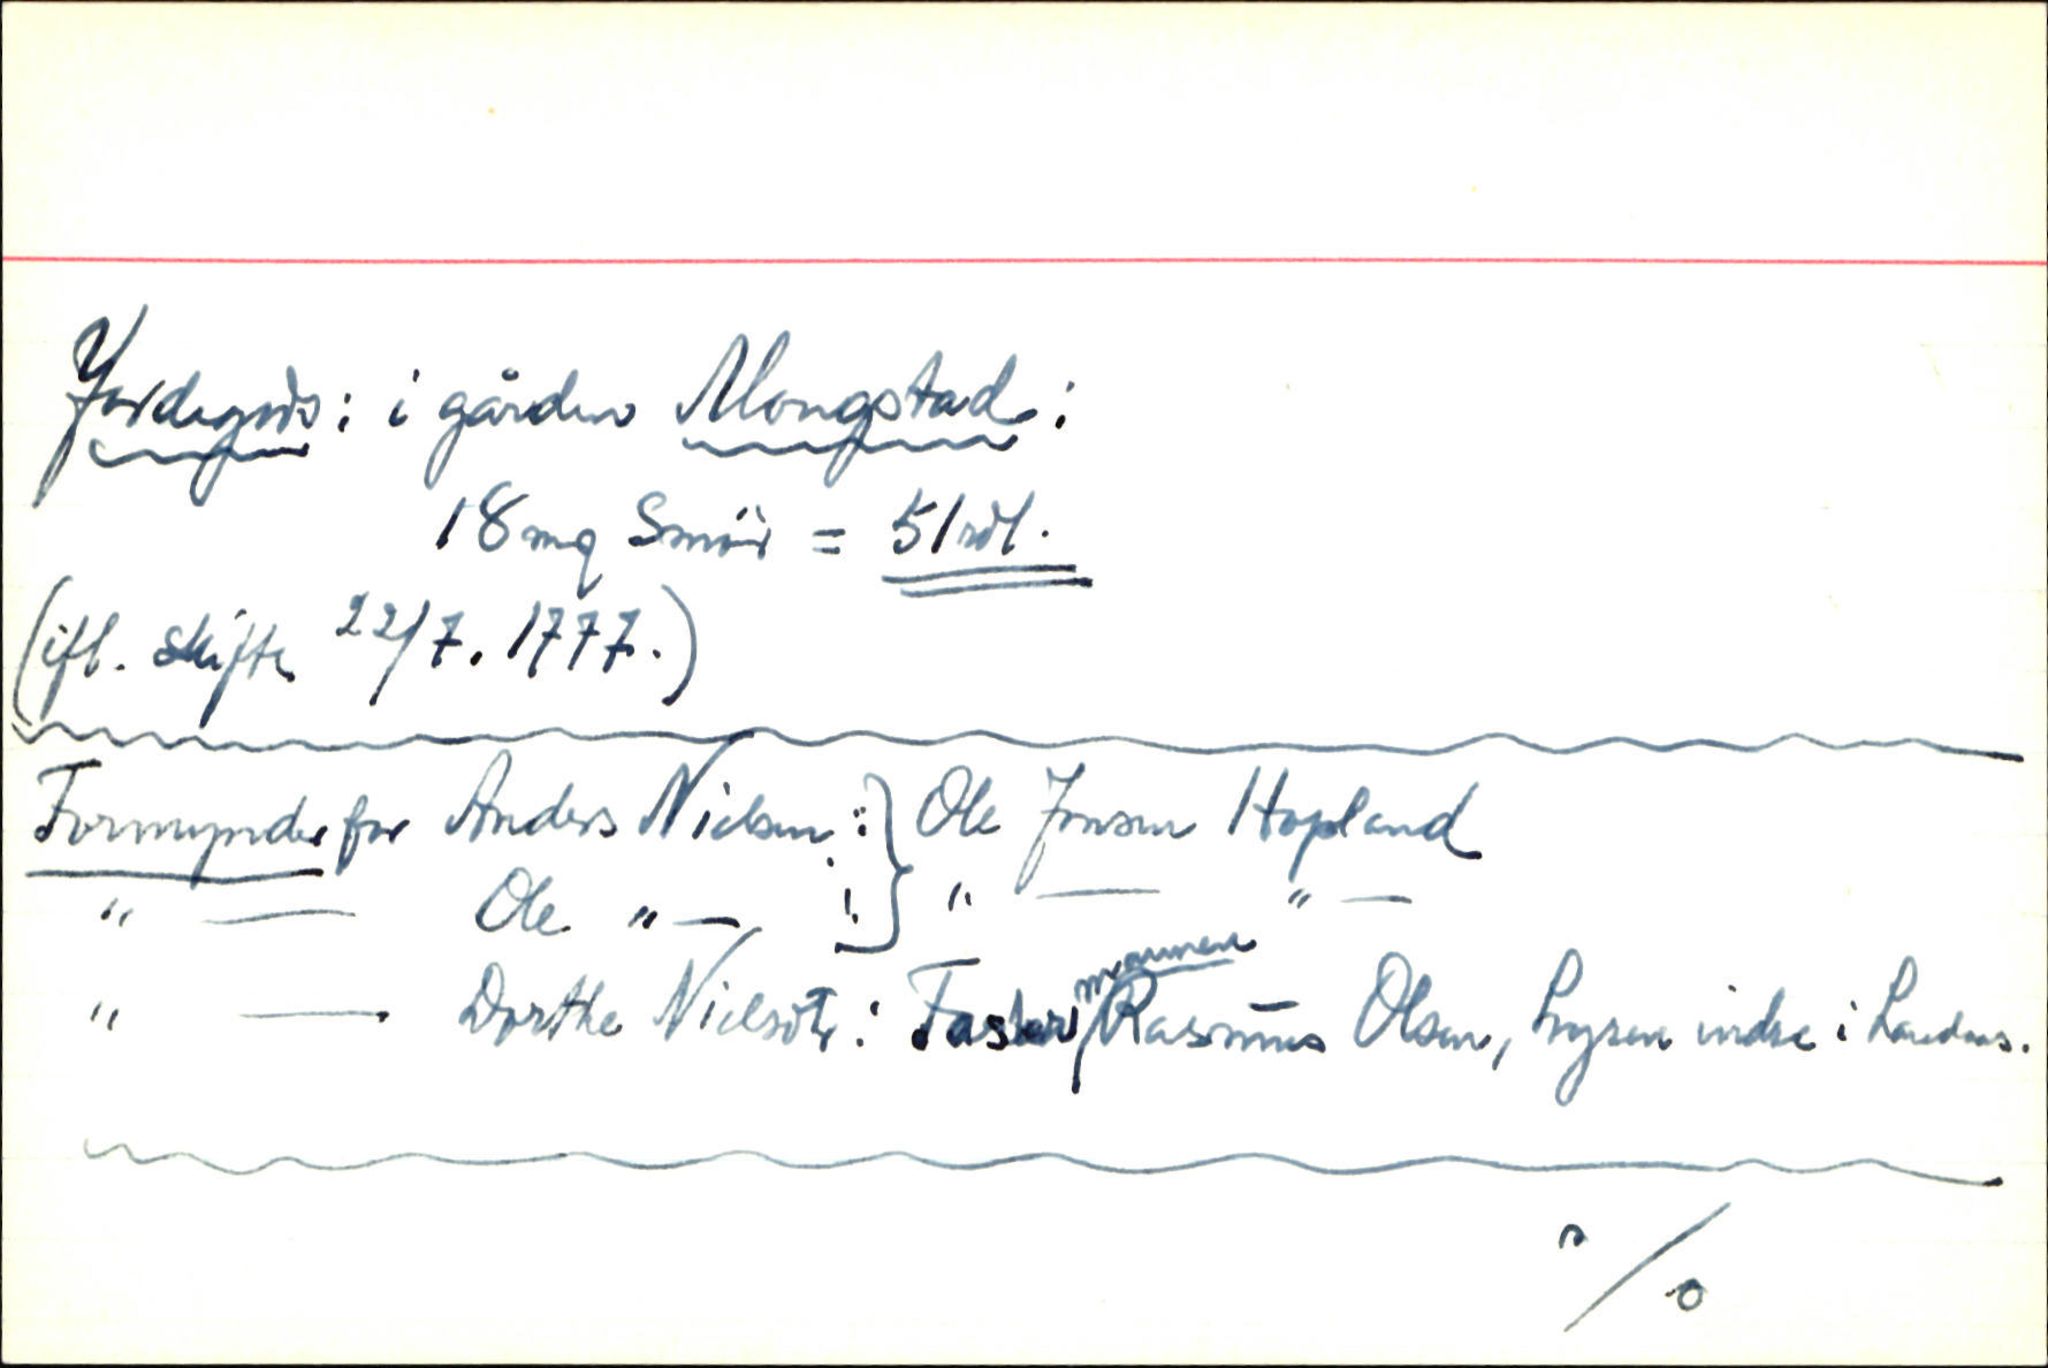 Jordegods: i gården Mongstad:
18 mg Smör = 51 rdl.
(ifl. skifte 22/7. 1777.)
Formynder for Anders Nielsen : } Ole Jonsen Hopland
" — Ole " — : } " — " —
" — Dorthe Nielsdtr: Faster mannen Rasmus Olsen, indre i
o/o